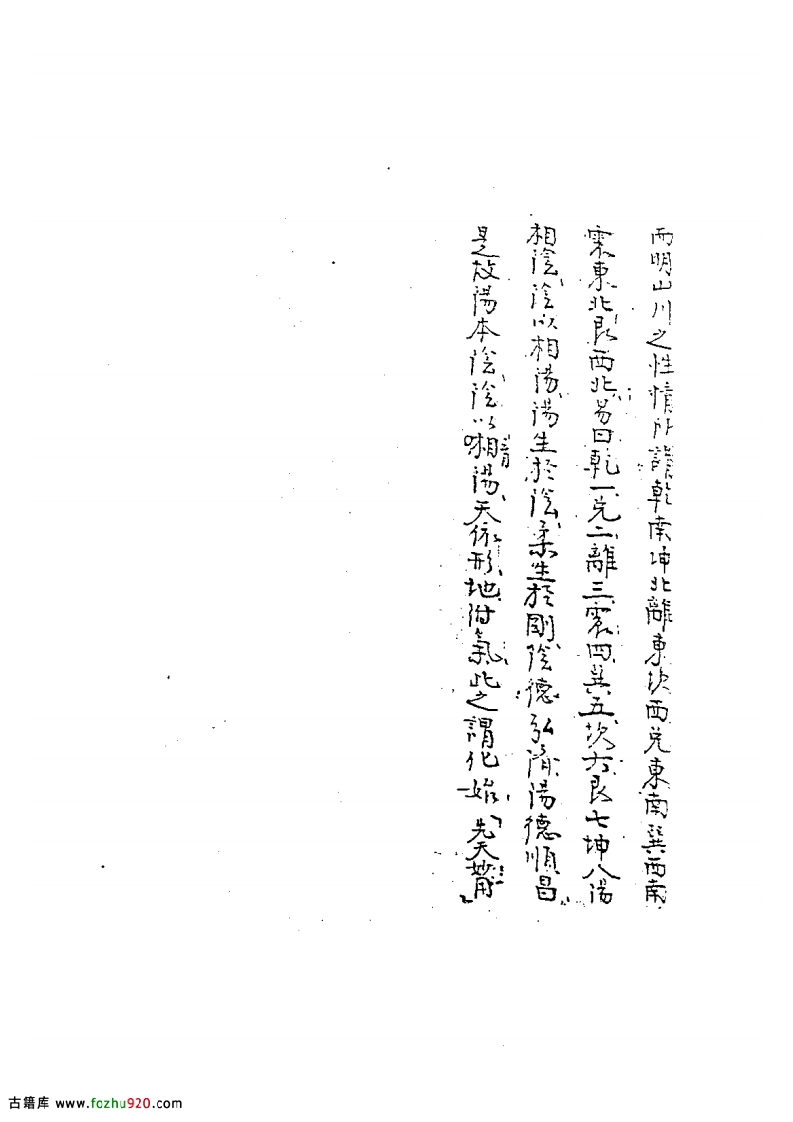 而明山川之性情所謂乾南坤北離東坎西兌東南巽西南
震東北艮西北易曰乾一兌二離三震四巽五坎六艮七坤八陽
相陰陰以相陽陽生於陰柔生於剛陰德弘濟陽德順昌
是故陽本陰陰以啃相陽天依形地附氣此之謂化始「先天妙用」
古籍库 www.fozhu920.com